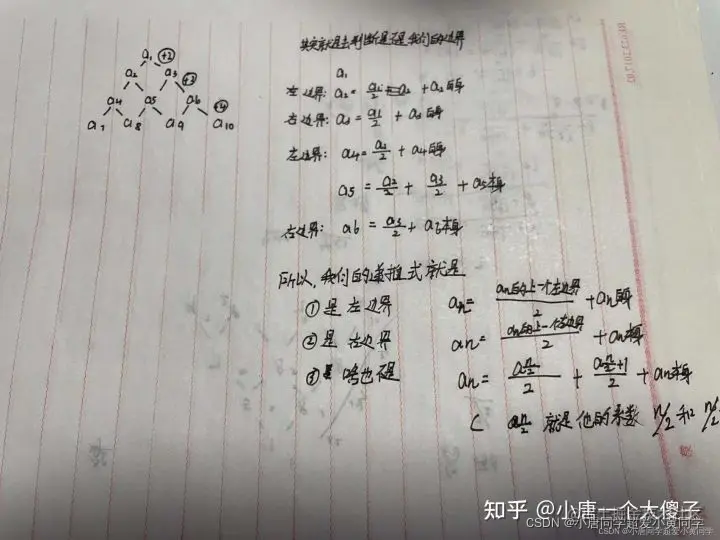 其实就是去判断是不是我们的边界
a₁ +2
a₂ a₃ +3
a₄ a₅ a₆ +4
a₇ a₈ a₉ a₁₀
a₁
左边界: a₂ = a₁/2 + a₂自身
右边界: a₃ = a₁/2 + a₃自身
左边界: a₄ = a₂/2 + a₄自身
a₅ = a₂/2 + a₃/2 + a₅本身
右边界: a₆ = a₃/2 + a₆本身
所以,我们的递推式就是
① 是左边界 aₙ = aₙ的上一个左边界/2 + aₙ自身
② 是右边界 aₙ = aₙ的上一个右边界/2 + aₙ本身
③ 啥也不是 aₙ = a n/2 /2 + a n/2+1 /2 + aₙ本身
( a n/2 就是他的系数 n/2 和 n/2
知乎 @小唐一个大傻子
CSDN @小唐同学超爱小黄同学